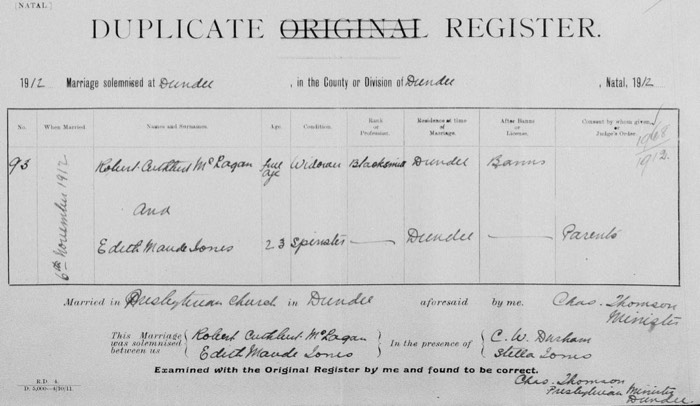 [NATAL.]
DUPLICATE ORIGINAL REGISTER.
1912 Marriage solemnised at Dundee, in the County or Division of Dundee, Natal, 1912
No. When Married. Names and Surnames. Age. Condition. Rank or Profession. Residence at time of Marriage. After Banns or License. Consent by whom given, or Judge's Order.
1968
1912.
93 6th November 1912 Robert Cuthbert McLagan full age Widower Blacksmith Dundee Banns
and
Edith Maude Jones 23 Spinster Dundee Parents
Married in Presbyterian Church in Dundee aforesaid by me. Chas. Thomson
Minister
This Marriage was solemnised between us Robert Cuthbert McLagan Edith Maude Jones In the presence of C. W. Durham Stella Jones
Examined with the Original Register by me and found to be correct.
Chas. Thomson
Presbyterian Minister
Dundee.
R.D. 4.
D. 5,000—4/10/11.